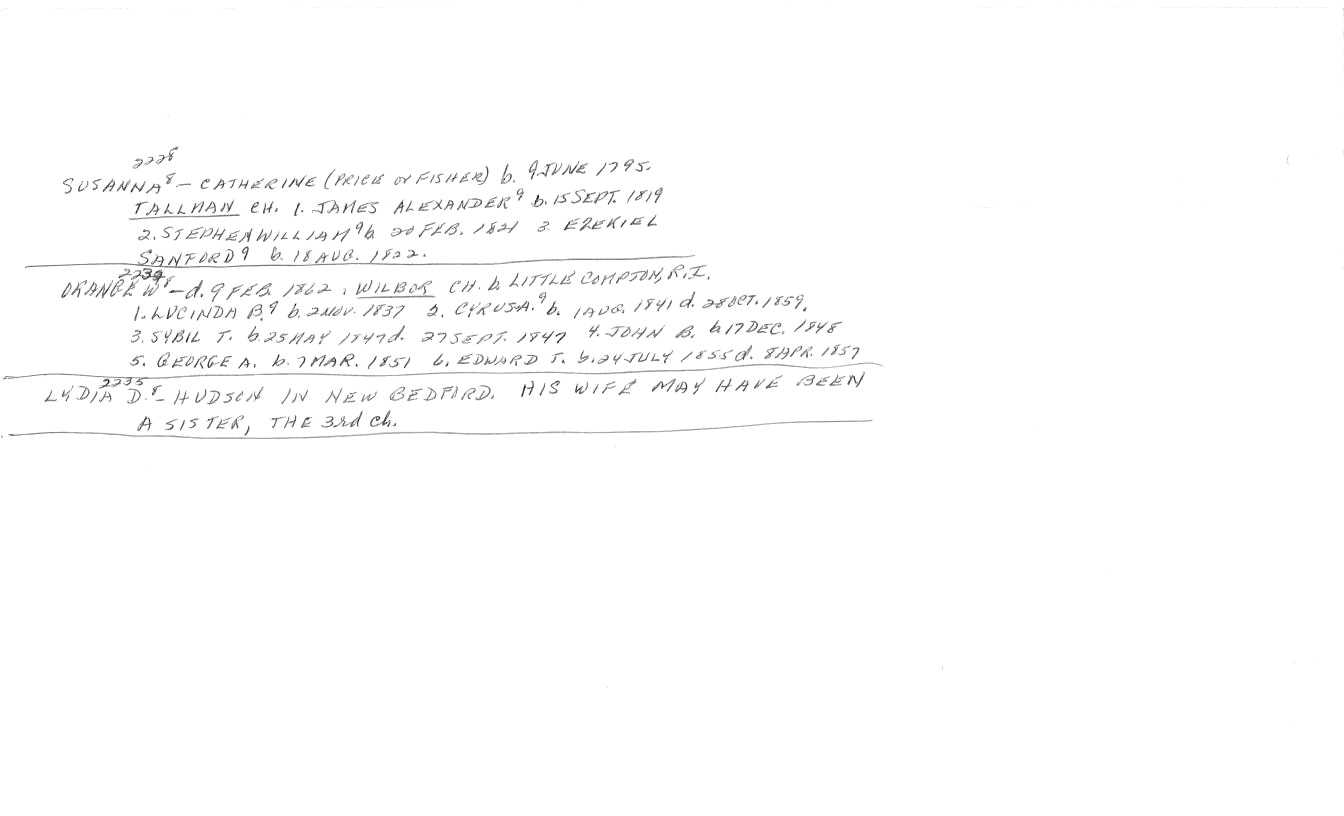 2228
SUSANNA⁸ - CATHERINE (PRICE or FISHER) b. 9 JUNE 1795.
TALLMAN CH. 1. JAMES ALEXANDER⁹ b. 15 SEPT. 1819
2. STEPHEN WILLIAM⁹ b. 20 FEB. 1821 3. EZEKIEL
SANFORD⁹ b. 18 AUG. 1822.
2234
ORANGE W⁸ - d. 9 FEB. 1862. WILBOR CH. b. LITTLE COMPTON, R.I.
1. LUCINDA B.⁹ b. 2 NOV. 1837 2. CYRUS A.⁹ b. 1 AUG. 1841 d. 28 OCT. 1859.
3. SYBIL T. b. 25 MAY 1847 d. 27 SEPT. 1847 4. JOHN B. b. 17 DEC. 1848
5. GEORGE A. b. 7 MAR. 1851 6. EDWARD T. b. 24 JULY 1855 d. 8 APR. 1857
2235
LYDIA D.⁸ - HUDSON IN NEW BEDFORD. HIS WIFE MAY HAVE BEEN
A SISTER, THE 3rd ch.